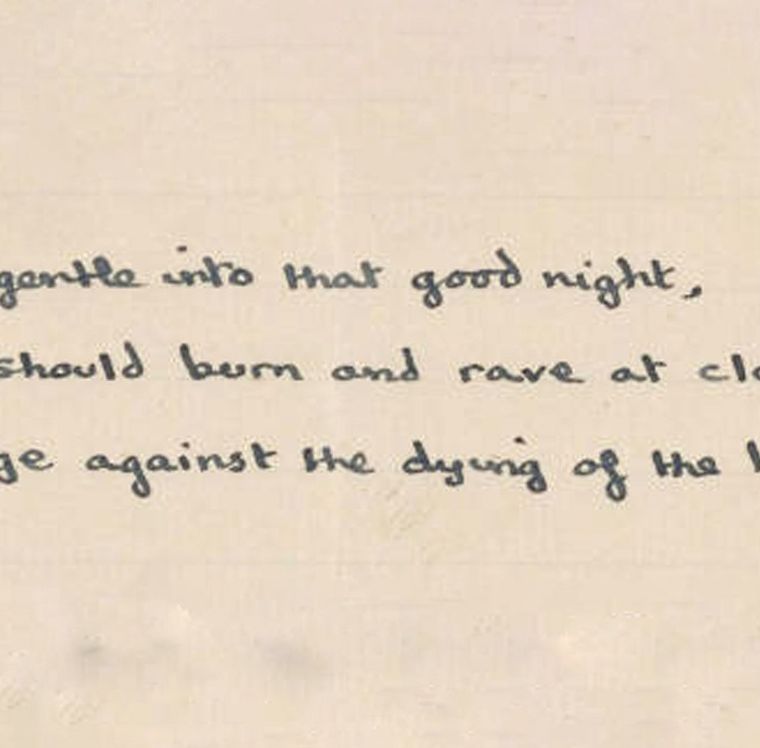 gentle into that good night,
should burn and rave at clo
ge against the dying of the l